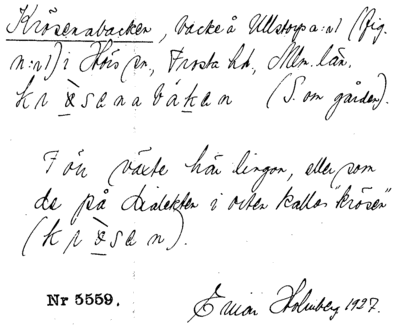 Krösenabacken, backe å Ullstorps a:n1 (fig.
n:r1) i Hörs sn, Frosta hd, Mlm. län.
krösenabákan (S. om gården).
Förr växte här lingon, eller som
de på dialekten i orten kallas "krösen"
(krösan).
Nr 5559.
Einar Holmberg 1927.